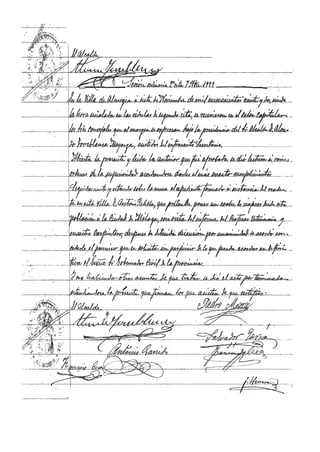 El Alcalde
Sesión ordinaria 2ª cita 7 Nbre. 1922
En la Villa de a siete de Noviembre de mil novecientos veinte y dos siendo
la hora señalada en las cédulas de segunda cita, se reunieron en el salón Capitular
los Sres concejales que al margen se expresan bajo la presidencia del Sr Alcalde D. Alon-
so Torreblanca asistidos del infrascrito Secretario.
Abierta la presente y leida la anterior que fué aprobada se dió lectura á varias
ordenes de la superioridad acordandose darles el mas exacto cumplimiento.
Seguidamente y estando sobre la mesa el expediente formado á instancia del
de esta villa D. Antonio que pretende poner un coche de viajeros desde esta
población á la Ciudad de Málaga, con vista del informe del y
maestro Carpintero, despues de detenida discusión por unanimidad se acordó con-
cederle el permiso que se solicita sin perjuicio de lo que pueda acordar en defini-
tiva el Exmo Sr Gobernador Civil de la provincia.
Y no habiendo otros asuntos de que tratar se dió el acto por terminado
extendiendose la presente que firman los que asisten de que certifico.
El Alcalde
Pedro
Salvador
Antonio Garrido
Francisco